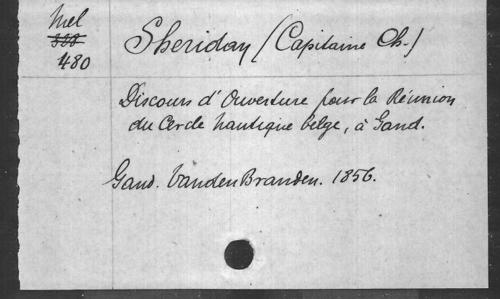 Mel
388
480
Sheridan (Capitaine Ch.)
Discours d'Ouverture pour la Réunion
du Cercle nautique belge, à Gand.
Gand. Vanden Branden. 1856.